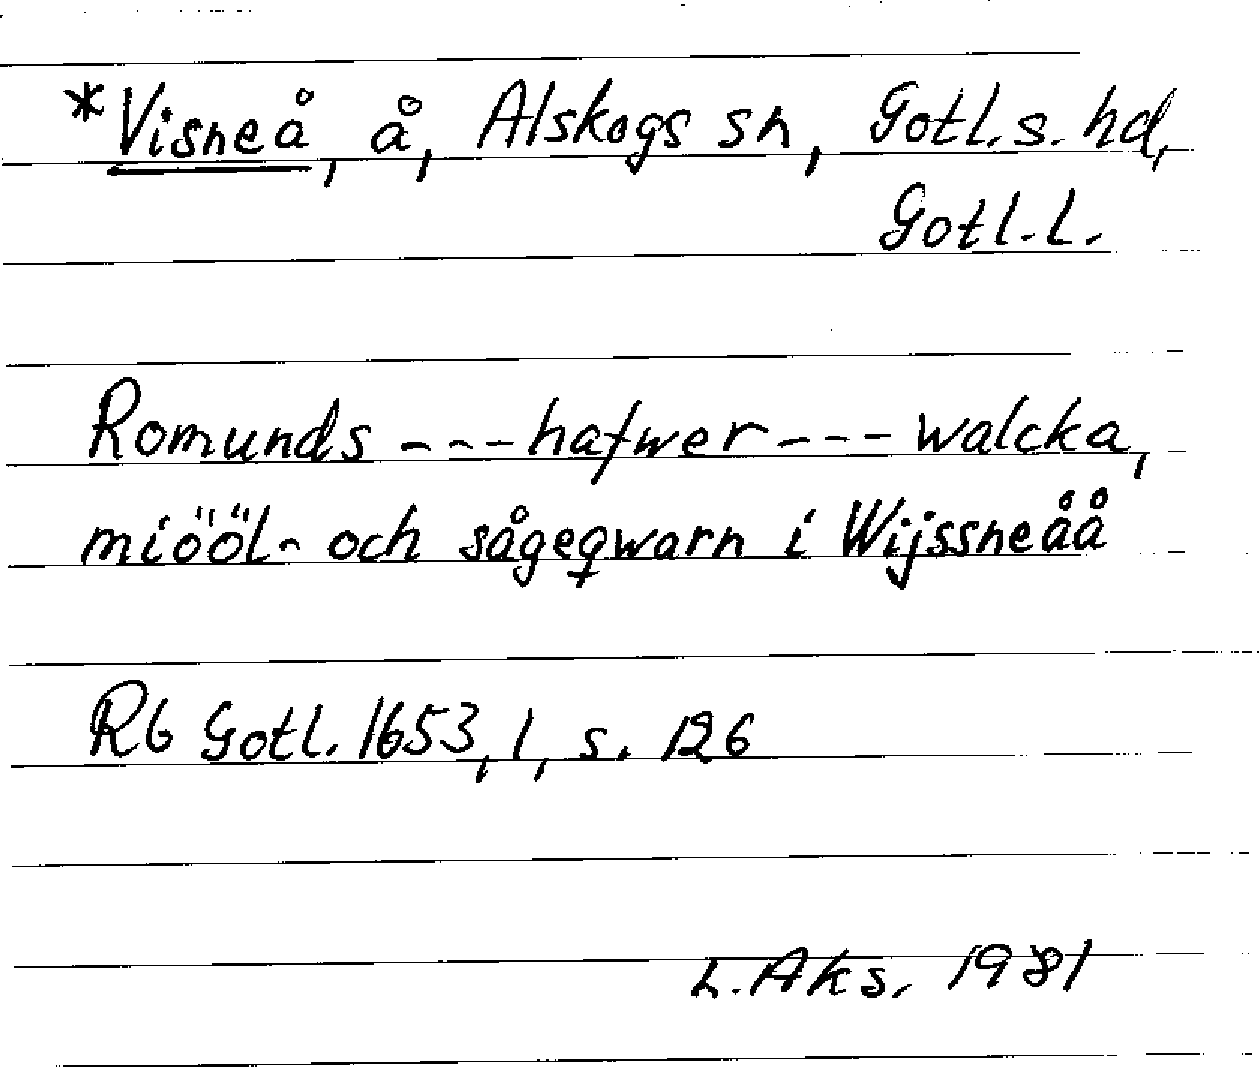 *Visneå, å, Alskogs sn, Gotl. s. hd,
Gotl. l.
Romunds --- hafwer --- walcka,
miööl- och sågeqwarn i Wijssneåå
Rb Gotl. 1653, 1, s. 126
L. Aks. 1981